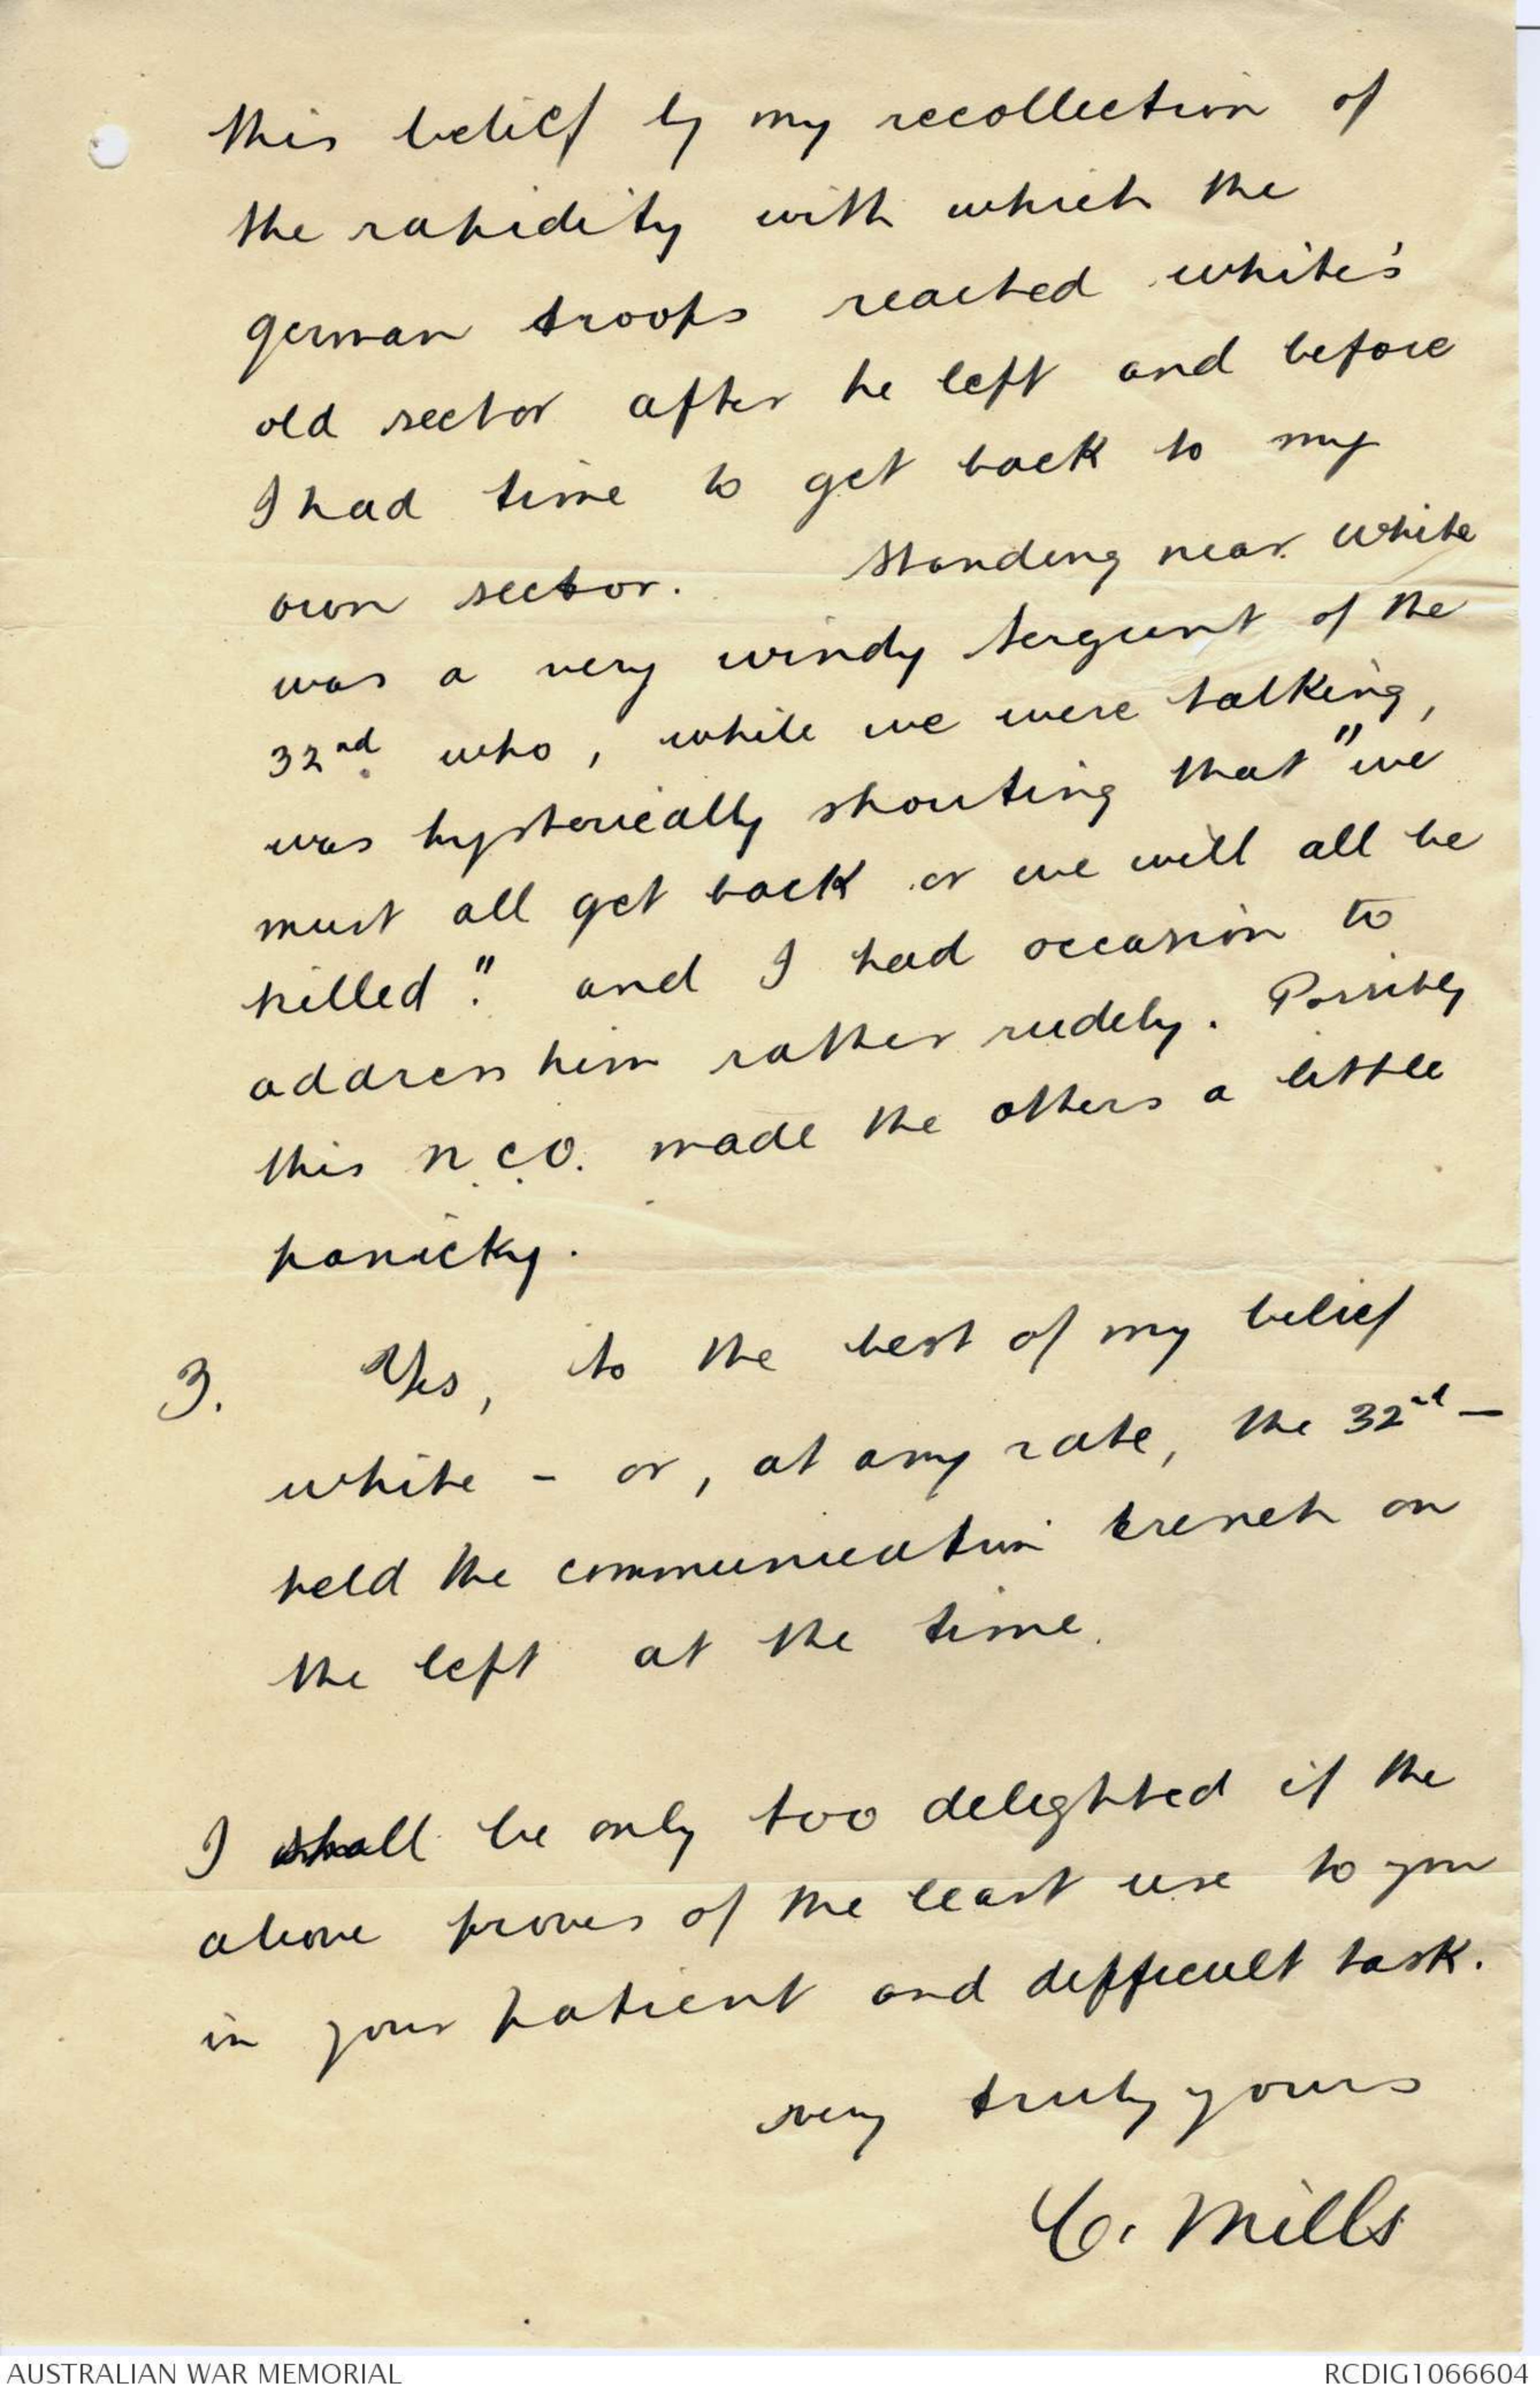 this belief by my recollection of
the rapidity with which the
german troops reached white's
old sector after he left and before
I had time to get back to my
own sector. Standing near White
was a very windy sergeant of the
32nd who, while we were talking,
was hysterically shouting that "we
must all get back or we will all be
killed". and I had occasion to
address him rather rudely. Possibly
this N.C.O. made the others a little
panicky.
3. Yes, to the best of my belief
white - or, at any rate, the 32nd -
held the communication trench on
the left at the time.
I shall be only too delighted if the
above proves of the least use to you
in your patient and difficult task.
very truly yours
C. Mills
AUSTRALIAN WAR MEMORIAL
RCDIG1066604